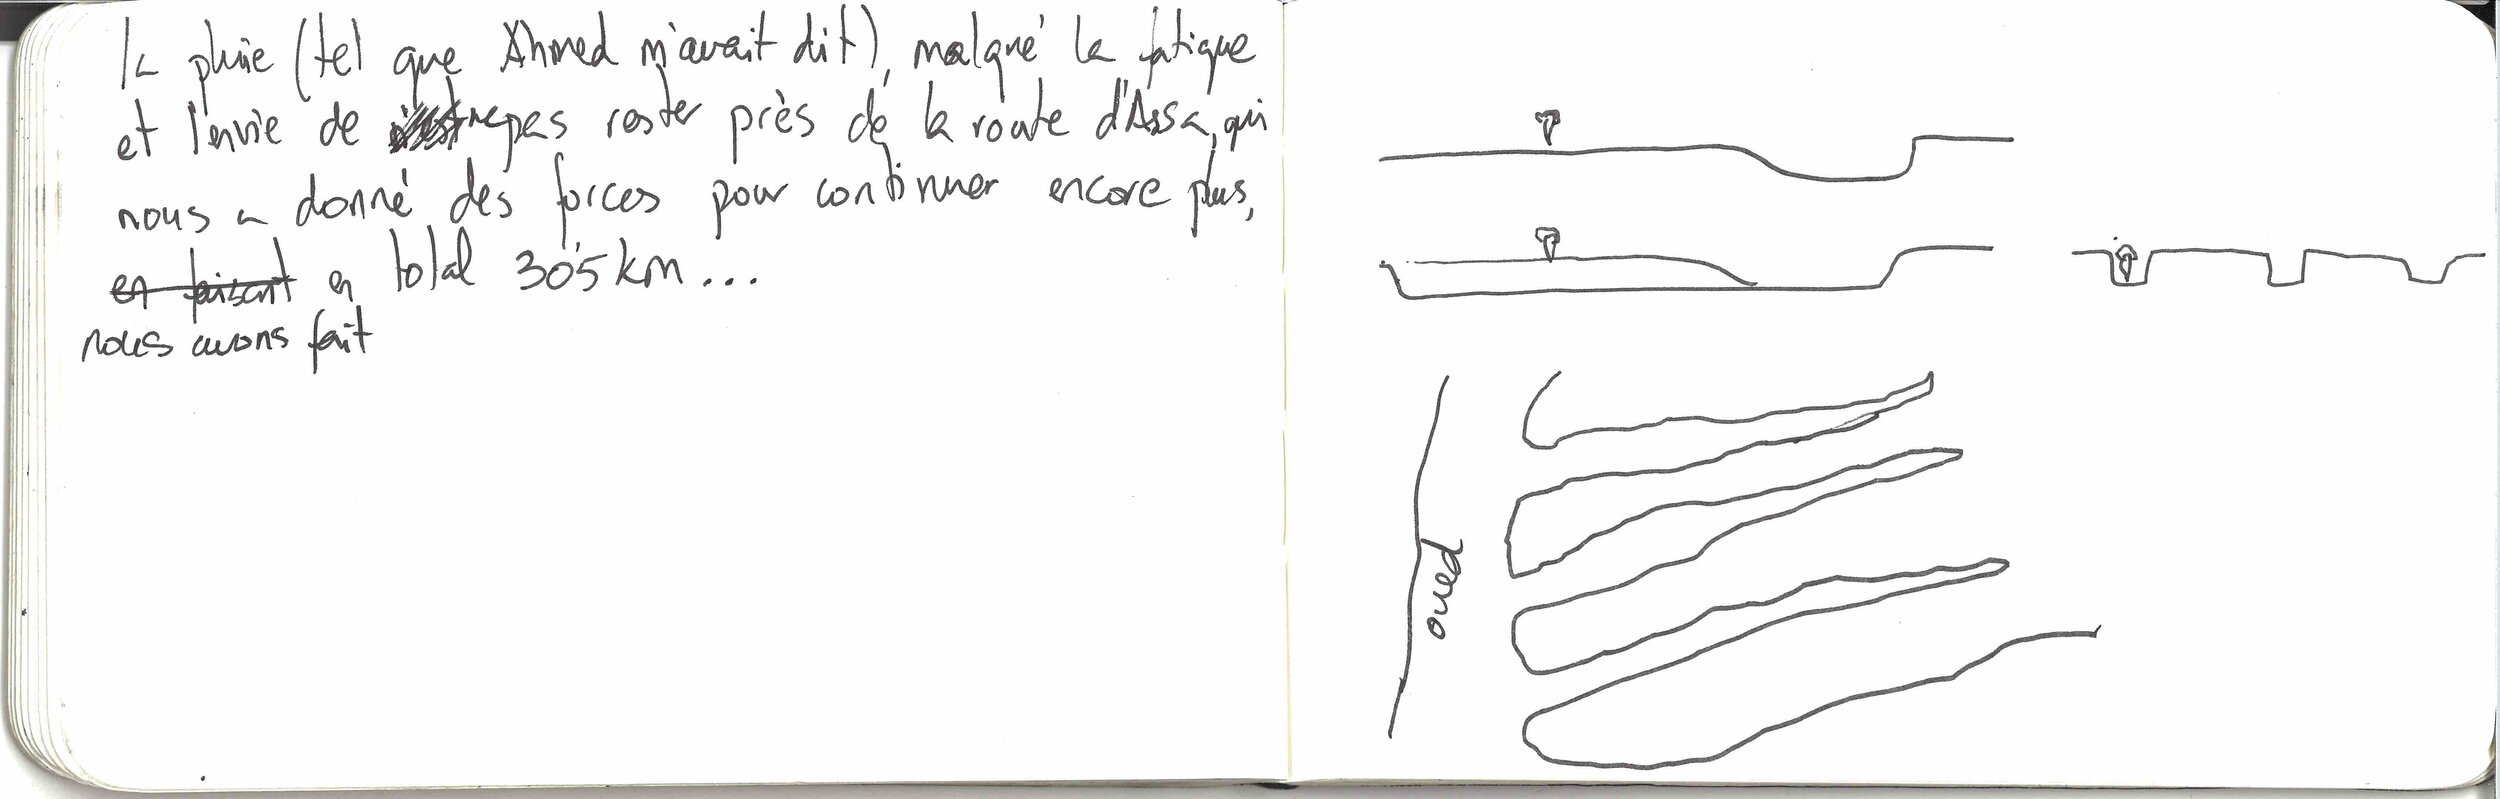 la pluie (tel que Ahmed m'avait dit), malgré la fatigue
et l'envie de ne pas rester près de la route d'Assa, qui
nous a donné des forces pour continuer encore plus,
en faisant en total 305 km...
nous avons fait
oued